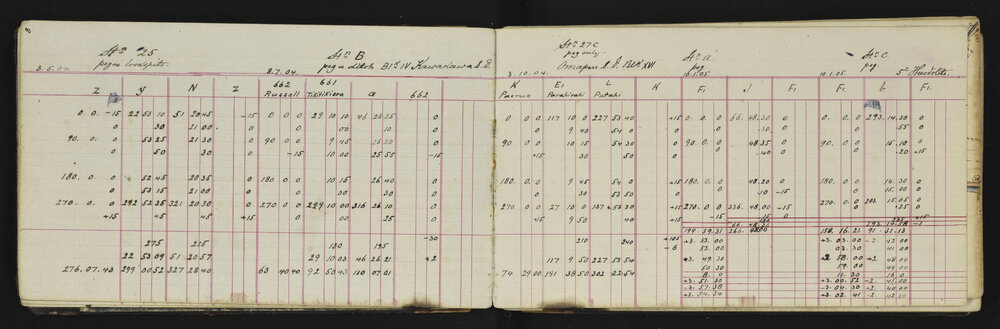 8
Stn 25
peg & lockspits.
3.5.04.
Z y N Z
0. 0. -15 22 53 10 51 20 45 -15
0 30 21.00 0
90. 0. 0 53 25 21 30 0
0 50 30 0
180. 0. 0 52 45 20 35 0
0 53 15 21.00 0
270. 0. 0 292 52 35 321 20 30 0
+15 45 45 +15
275 215
22 53 09 51 20 57
276.07.43 299 00 52 327 28 40
Stn B
peg & ditch Blk IV Kawakawa S.D.
8.7.04.
662 661
Russell Tikitikiora a 662
0 0 0 29 10 10 46 26 25 0
0 00 10 0
90 0 0 9 45 26 20 0
-15 10 00 25 55 -15
180 0 0 10 15 26 40 0
0 30 30 0
270 0 0 229 10 00 316 26 10 0
0 00 25 0
-30
130 195
29 10 03 46 26 21 +2
63 40 40 92 50 43 110 07 01
Stn 27C
peg only.
Omapere S.D. Blk XVI
3.10.04.
K E1 L K
Paerua Parahirahi Putahi
0 0 0 117 10 0 227 53 40 +15
0 9 40 54 0 0
90 0 0 10 15 54 0 0
+15 30 50 0
180. 0 0 9 45 54 0 +15
0 30 53 50 0
270 0 0 27 10 0 53 30 +15
+15 9 50 40 +15
210 240 +105
117 9 50 227 53 54
74 29 00 191 38 50 302 22 54
Stn A
peg
10.1.05.
F1 J F1
0. 0. 0 66. 48. 30 0
0 .30 0
90. 0. 0 48. 35 0
0 .40 0
180. 0. 0 48. 20 0
0 .30 -15
270. 0. 0 336. 48. 00 -15
-15 15 0
194. 59. 31
+3. 53. 00
53. 00
+3. 49. 30
50. 30
+3. 51. 30
-3. 57. 38
+3. 54. 34
Stn C.
peg
10.1.05. 5" Theodolite.
F1 G F1.
0. 0. 0 293. 14. 30 0
0 .55 0
90. 0. 0 15. 10 0
0 .20 +15
180. 0. 0 14. 30 0
0 15. 40 0
270. 0. 0 15. 05 0
158. 16. 21 91. 31. 13
+3. 03. 00 -2 42 00
03. 30 41 00
+2 58. 00 +2 48 00
59. 00 49 00
+3. 00. 52 +2 45 00
-3. 04. 30 -2. 40 00
+3. 02. 41 -2. 42 30